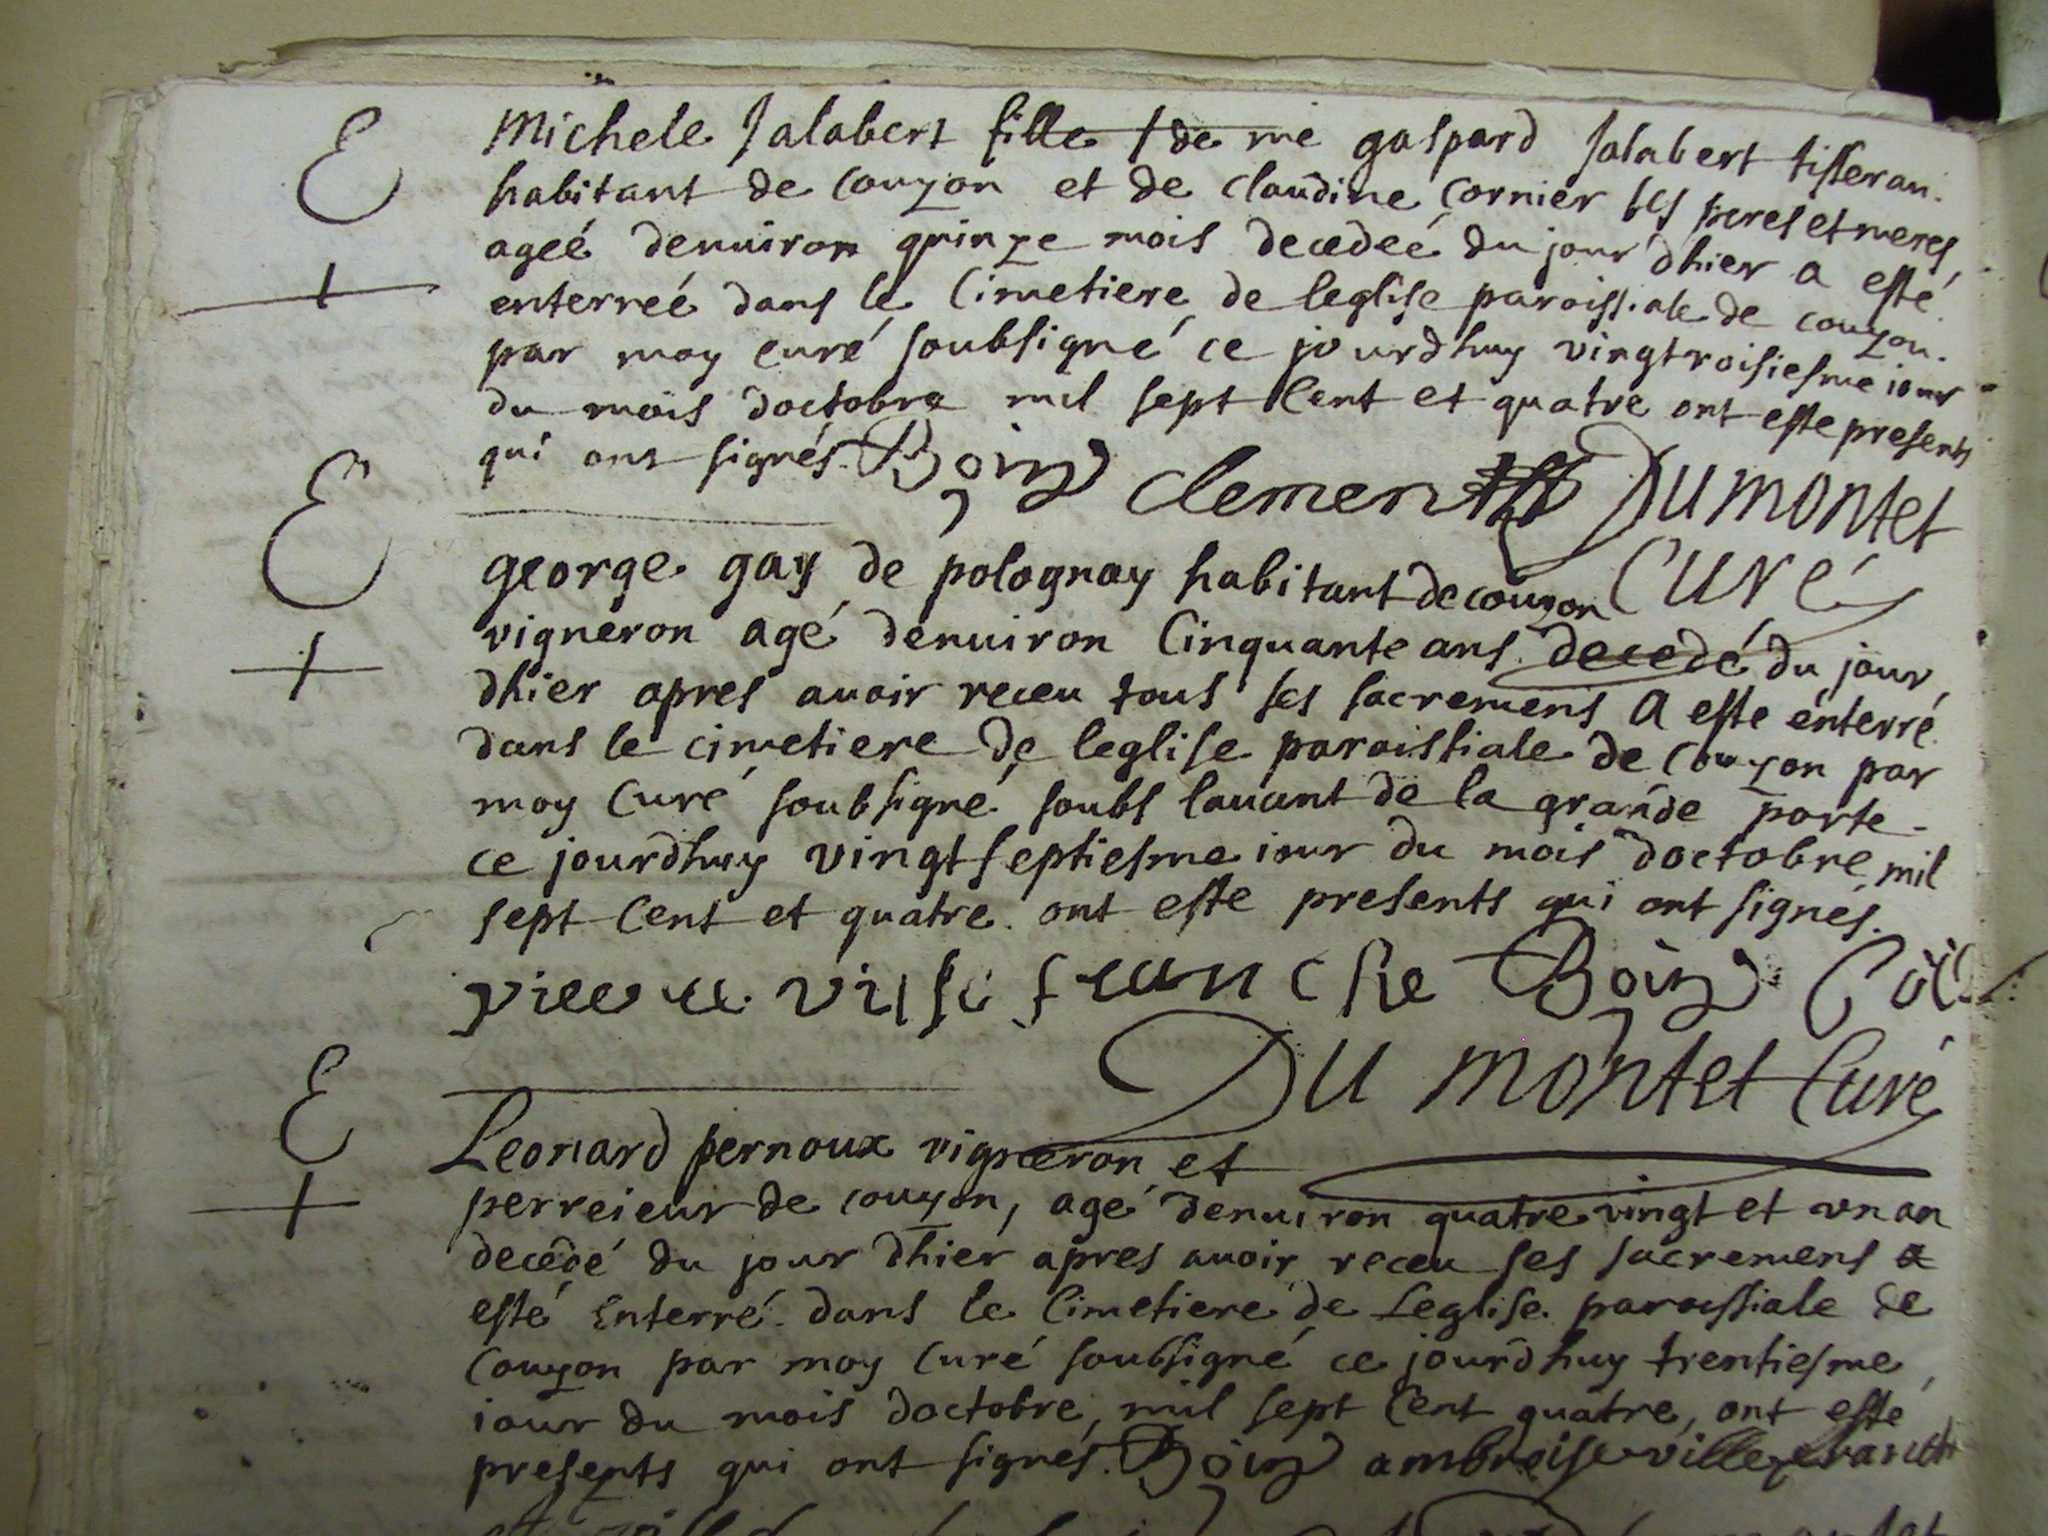 E Michele Jalabert fille de me gaspard Jalabert tisseran
habitant de couzon et de claudine cornier ses peres et meres
ageé denuiron quinze mois decedeé du jour dhier a esté
+ enterreé dans le Cimetiere de leglise paroissiale de couzon
par moy curé soubsigné ce jourdhuy vingtroisiesme iour
du mois doctobre mil sept Cent et quatre ont este presents
qui ont signés. Boiry clement Dumontet
Curé
E george gay de polognay habitant de couzon
vigneron agé denuiron Cinquante ans decedé du jour
+ dhier apres auoir receu tous ses sacremens A este énterré
dans le cimetiere de leglise paroissiale de Couzon par
moy Curé soubsigné soubs lauant de la grande porte
ce jourdhuy vingtseptiesme iour du mois doctobre mil
sept Cent et quatre ont este presents qui ont signés.
franche
Du montet Curé
E Leonard pernoux vigneron et
+ perreieur de couzon, agé denuiron quatre vingt et vn an
decedé du jour dhier apres auoir receu ses sacremens a
esté Enterré dans le Cimetiere de Leglise paroissiale de
Couzon par moy Curé soubsigné ce jourdhuy trentiesme
iour du mois doctobre, mil sept Cent quatre, ont esté
presents qui ont signés. ambroise villefranche